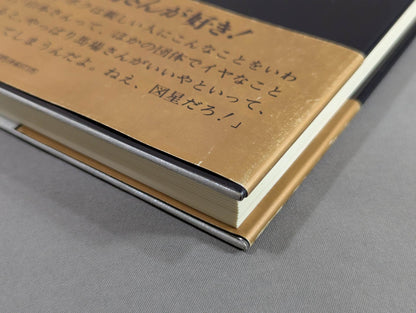 さんが好き!
は新しい人にこんなことをいわ
って、ほかの団体でイヤなこと
、やっぱり馬場さんがいいやといって、
てしまうんだよ。ねえ、図星だろ!」